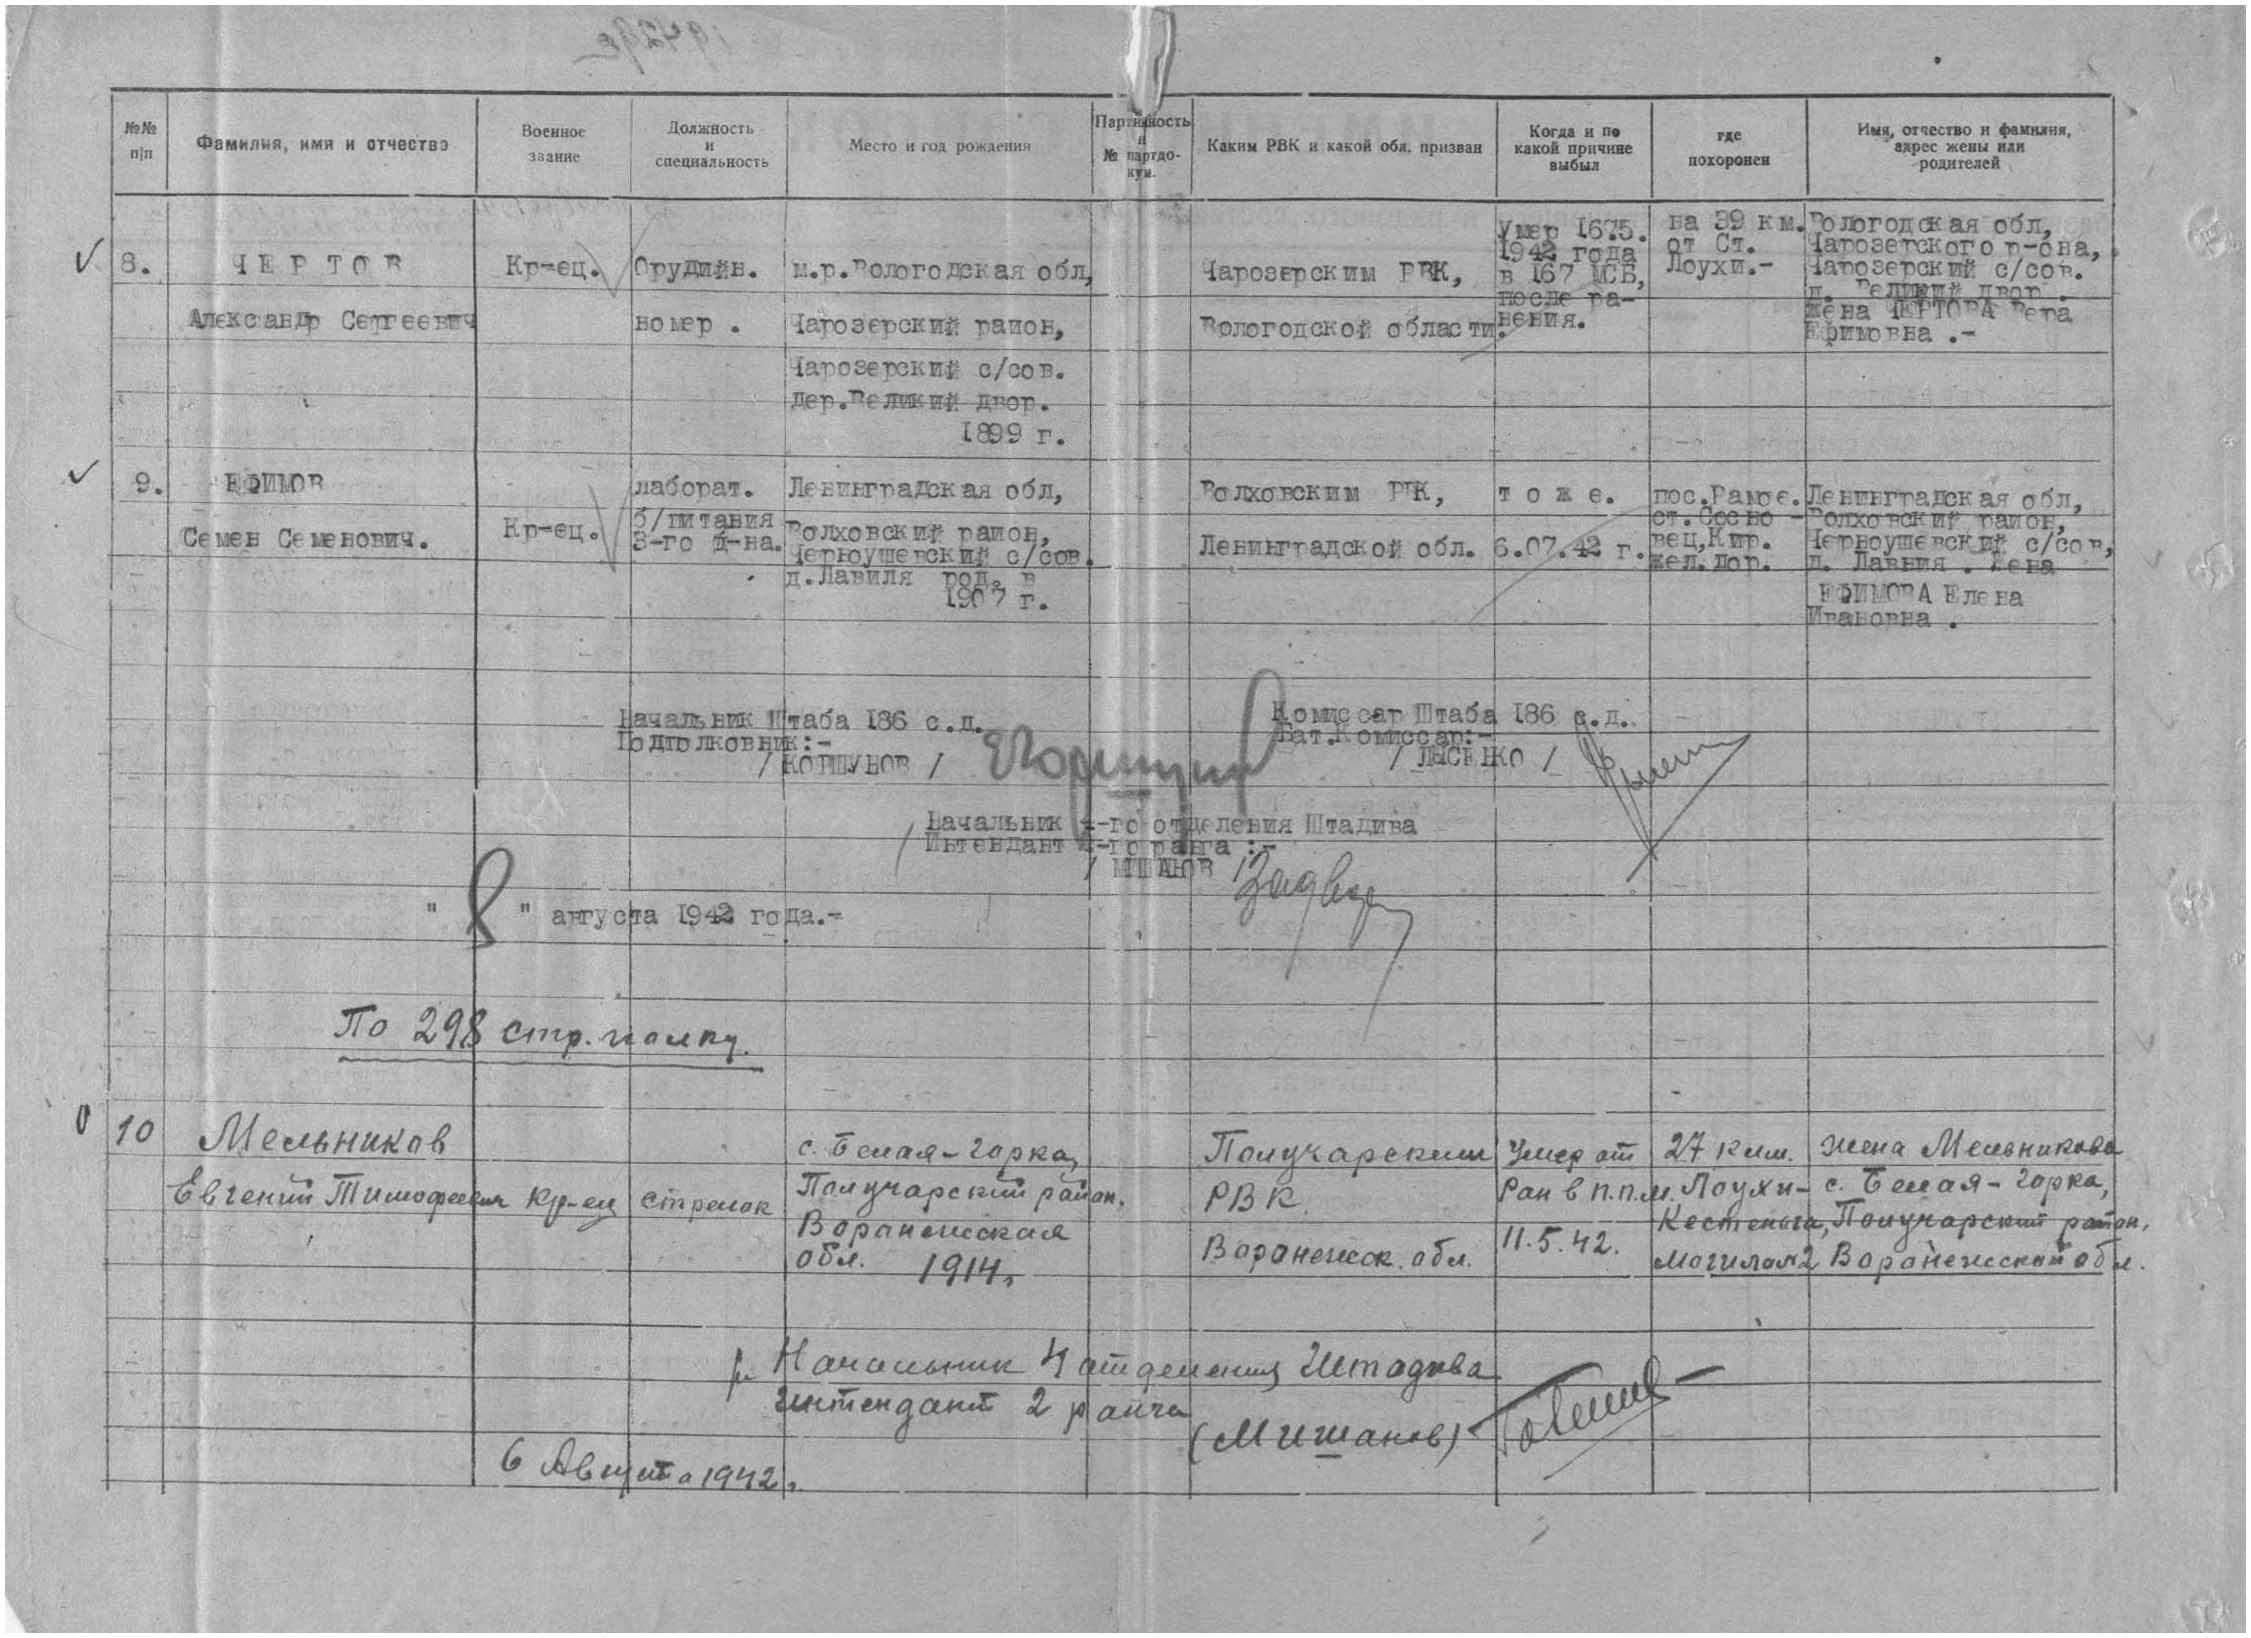 №№ п/п
Фамилия, имя и отчество
Военное звание
Должность и специальность
Место и год рождения
Партийность и № партдокум.
Каким РВК и какой обл. призван
Когда и по какой причине выбыл
где похоронен
Имя, отчество и фамилия, адрес жены или родителей
8.
ЧЕРТОВ
Александр Сергеевич
Кр-ец.
Орудийн.
номер .
м.р.Вологодская обл,
Чарозерский раион,
Чарозерский с/сов.
Дер.Великий двор.
1899 г.
Чарозерским РВК,
Вологодской области.
Умер 16.5.
1942 года
в 167 МСБ,
после ра-
нения.
на 39 км.
от Ст.
Лоухи.-
Вологодская обл,
Чарозерского р-она,
Чарозерский с/сов.
д. Великий двор .
жена ЧЕРТОВА Вера
Ефимовна .-
9.
ЕФИМОВ
Семен Семенович.
Кр-ец.
лаборат.
б/питания
3-го д-на.
Ленинградская обл,
Волховский раион,
Черноушевский с/сов.
д.Лавиля род. в
1907 г.
Волховским РВК,
Ленинградской обл.
т о ж е.
6.07.42 г.
пос.Рамое.
ст.Сосно -
вец,Кир.
жел.дор.
Ленинградская обл,
Волховский раион,
Черноушевский с/сов,
д. Лавния . Жена
ЕФИМОВА Елена
Ивановна .
Начальник Штаба 186 с.д.
Подполковник:-
/ КОРШУНОВ /
Комиссар Штаба 186 с.д.
Бат.Комиссар:-
/ ЛЫСЕНКО /
Начальник 4-го отделения Штадива
Интендант 2-го ранга :-
/ МИШАНОВ /
" 8 " августа 1942 года.-
По 298 стр. полку.
10
Мельников
Евгений Тимофеевич
Кр-ец
стрелок
с. Белая-Горка,
Получарский район.
Воронежская
обл. 1914г
Получарским
РВК.
Воронежск. обл.
Умер от
ран в п.п.м.
11.5.42.
27 клм.
Лоухи-
Кестеньга,
могила№2
жена Мельникова
с. Белая-Горка,
Получарский район,
Воронежской обл.
Начальник 4 отделения Штадива
Интендант 2 ранга
(Мишанов)
6 Августа 1942г.